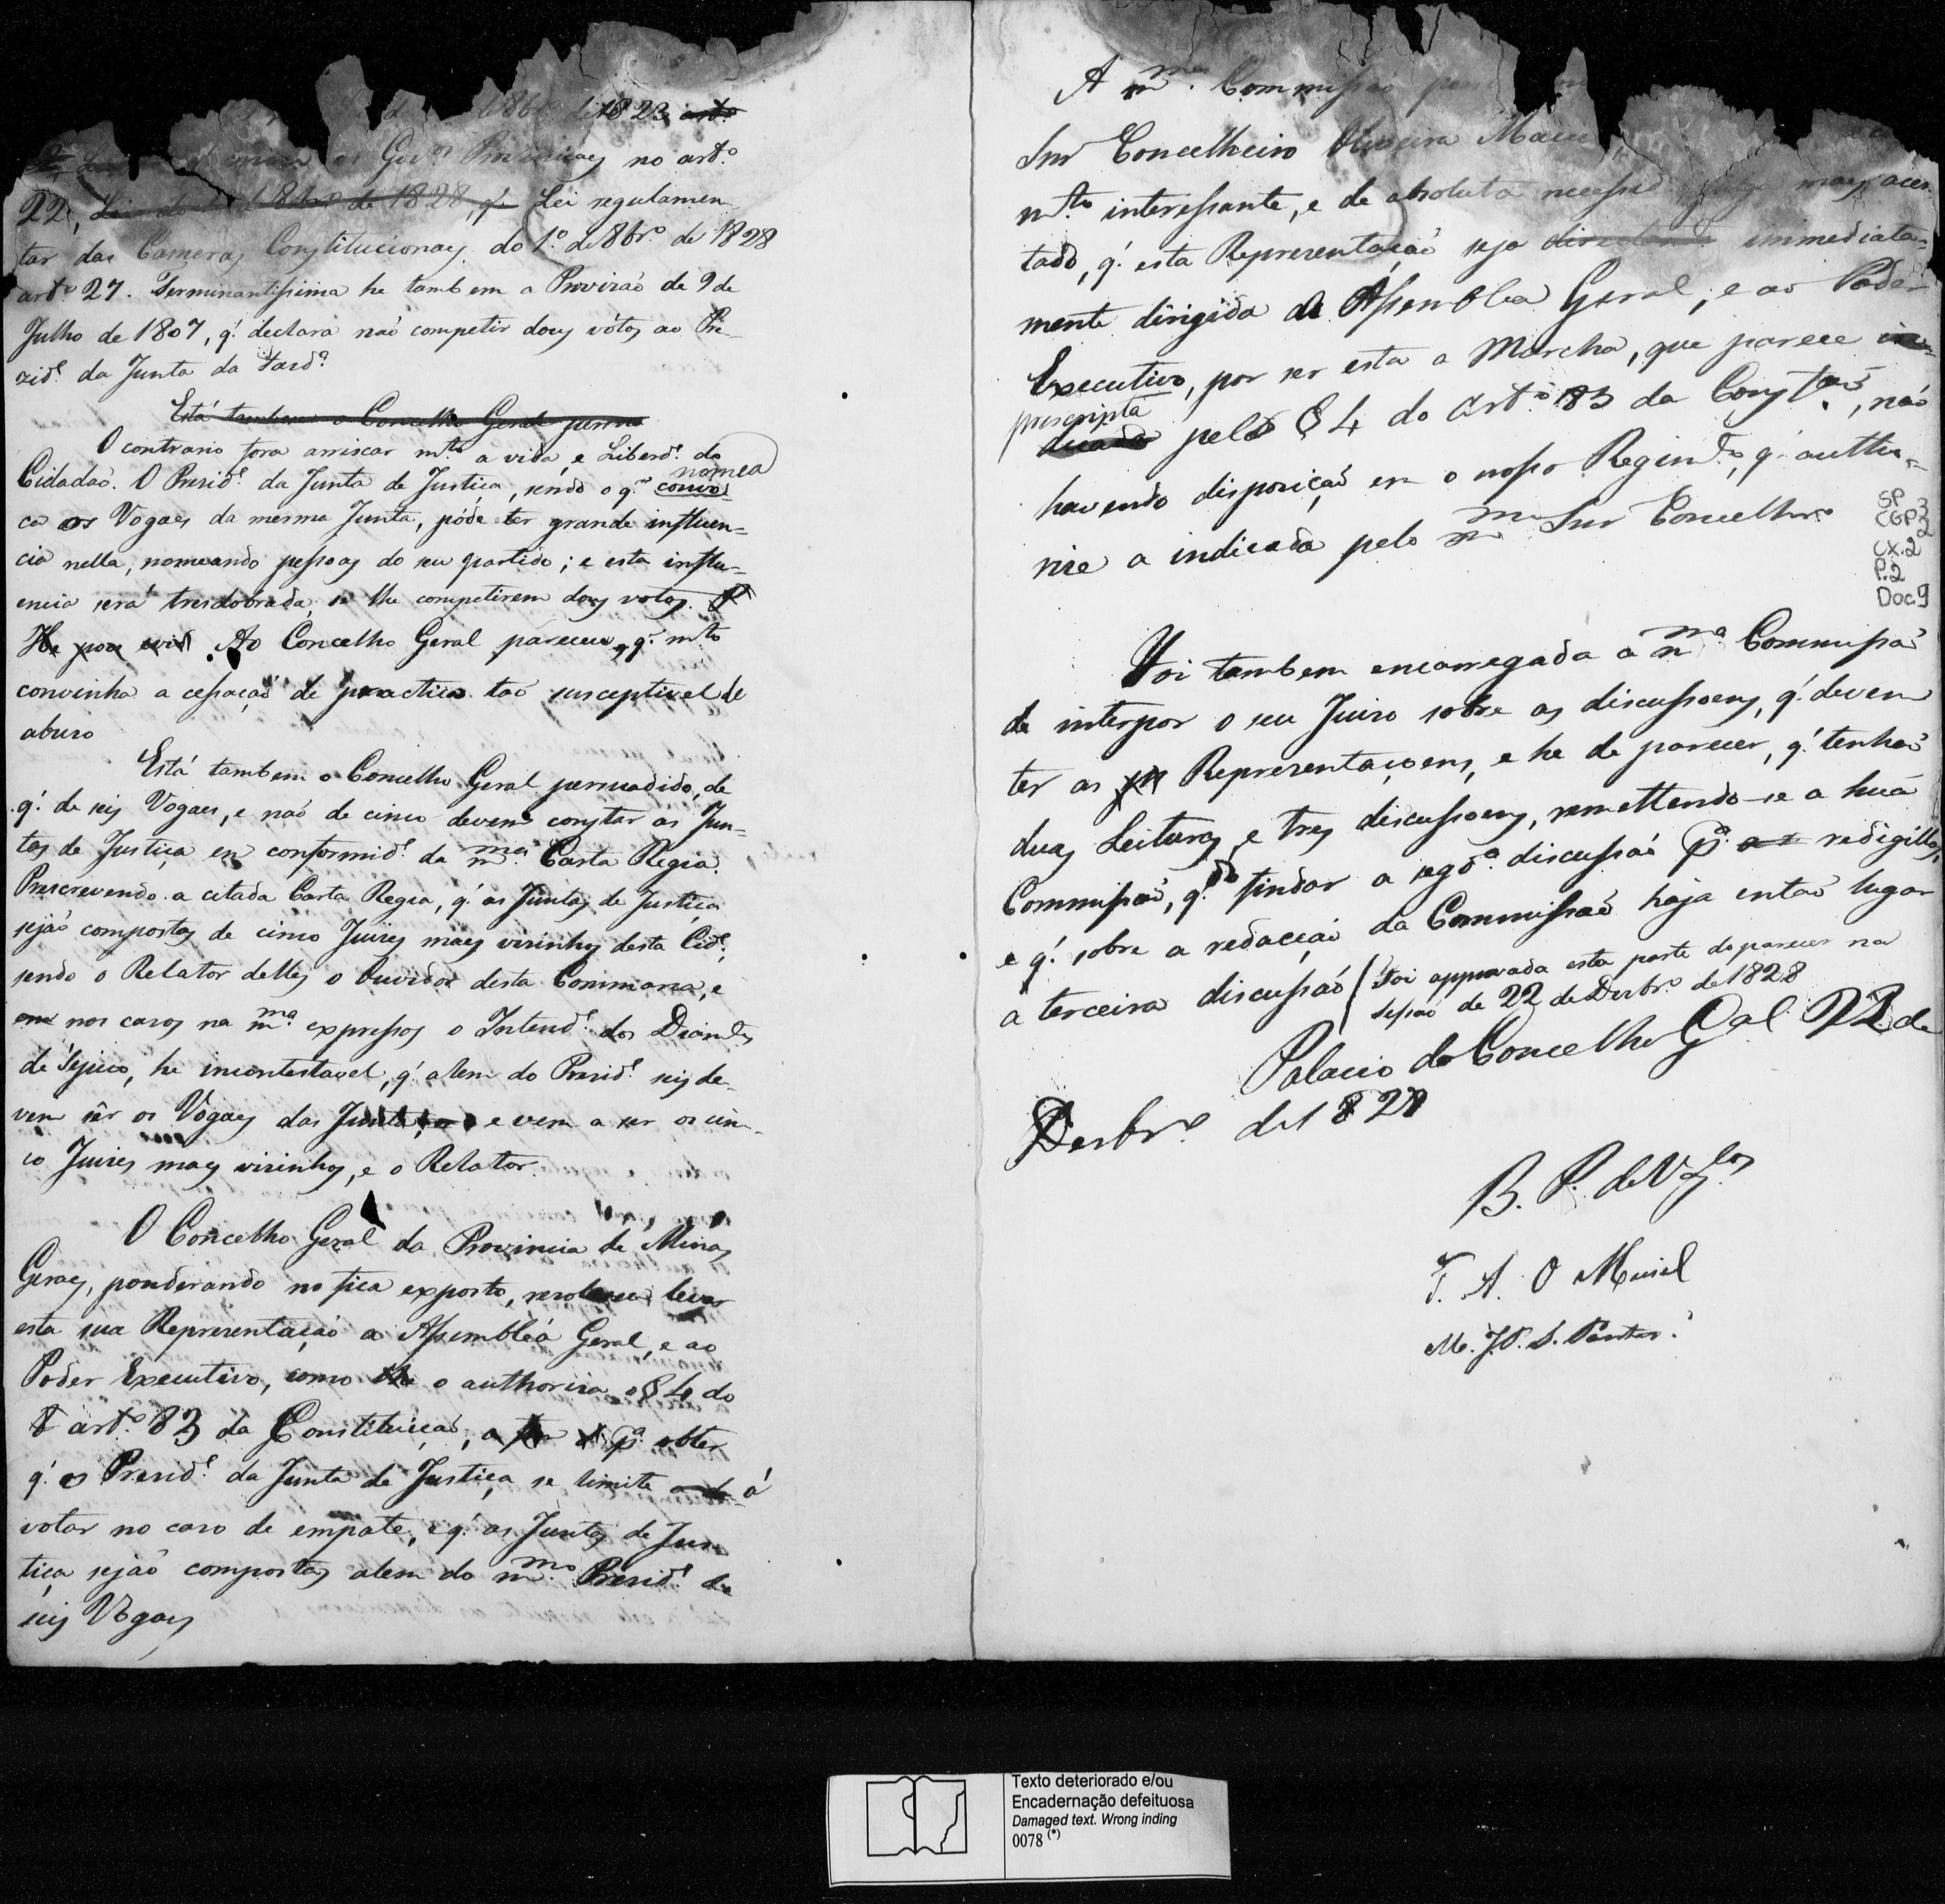 de 1823 art.º
os Gov.os Provinciaes no art.º
22, Lei do 1828, q.' Lei regulamen
tar das Cameras Constitucionaes do 1.º de 8br.º de 1828
art.º 27. Terminantissima he tambem a Provizaõ de 9 de
Julho de 1807, q.' declara naõ competir dous vótos ao Pre
zid.e da Junta da Fazd.ª
Está tambem o Concelho Geral persua
O contrario fora arriscar m.to a vida, e Liberd.e do
Cidadaõ. O Presid.e da Junta de Justiça, sendo o q.m convo nomea
ca os Vogaes da mesma Junta, póde ter grande influen=
cia nella, nomeando pessoas do seu partido; e esta influ=
encia será tresdobrada, se lhe competirem dous votos.
He por evid Ao Concelho Geral pareceu, q.' m.to
convinha a cessaçaõ de practica taõ susceptivel de
abuso
Está tambem o Concelho Geral persuadido, de
q.' de seis Vogaes, e naõ de cinco devem constar as Jun=
tas de Justiça em conformid.e da m.ma Carta Regia.
Prescrevendo a citada Carta Regia, q.' as Juntas de Justiça
sejaõ compostas de cinco Juizes mais visinhos desta Cid.e,
sendo o Relator delles o Ouvidor desta Commarca, e
em nos casos na m.ma expressos o Intend.e dos Diam.tes
de Tejuco, he incontestavel, q.' alem do Presid.e seis de-
vem sêr os Vogaes das Juntas, e vem a ser os cin-
co Juizes mais visinhos, e o Relator.
O Concelho Geral da Provincia de Minas
Geraes, ponderando no fica exposto, resolveu levar
esta sua Representaçaõ a Assemblea Geral, e ao
Poder Executivo, como o authorisa o § 4 do
art.º 83 da Constituiçaõ, a p.ª obter
q.' o Presid.e da Junta de Justiça, se limite á
votar no caso de empate, e q.' as Juntas de Jus
tiça sejaõ compostas alem do m.mo Presid.e de
seis Vogaes
A m.ma Commissaõ
Snr Concelheiro Oliveira
m.to interessante, e de absoluta necessid mais acer
tado, q.' esta Representaçaõ seja directam.te immediata=
mente dirigida á Assemblea Geral, e ao Poder
Executivo, por ser esta a Marcha, que parece in=
prescripta
dicada pelo § 4 do art.º 83 da Const.am, naõ
havendo disposiçaõ em o nosso Regim.to, q.' autho=
rise a indicada pelo m.mo Snr Concelheiro
SP
CGP3
2
CX.2
P.2
Doc.9
Foi tambem encarregada a m.ma Commissaõ
de interpor o seu Juiso sobre as discussoens, q.' devem
ter as Representaçoens, e he de parecer, q.' tenhaõ
duas Leituras, e tres discussoens, remettendo-se a huã
Commissaõ, q.do findar a segd.ª discussaõ p.ª redigillas,
e q.' sobre a redacçaõ da Commissaõ haja entaõ lugar
a terceira discussaõ / Foi approvada esta parte do parecer na
sessaõ de 22 de Dezbr.º de 1828
Palacio do Concelho Gal 22 de
Dezbr.º de 1828
B. P. de V.los
T. A. O Maciel
M. J. P. S. Pontes.
Texto deteriorado e/ou
Encadernação defeituosa
Damaged text. Wrong inding
0078 (*)